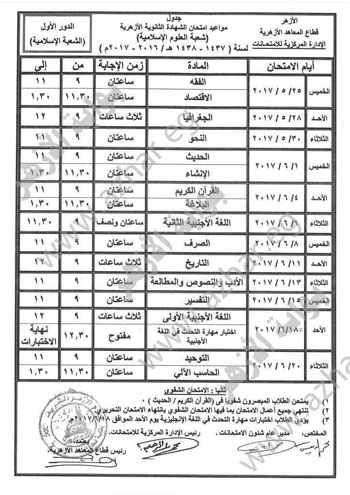 الأزهر
قطاع المعاهد الأزهرية
الإدارة المركزية للامتحانات
جدول
مواعيد امتحان الشهادة الثانوية الأزهرية
(شعبة العلوم الإسلامية)
لسنة (١٤٣٧ - ١٤٣٨هـ / ٢٠١٦ - ٢٠١٧م)
الدور الأول
(الشعبة الإسلامية)
أيام الامتحان المادة زمن الإجابة من إلى
الخميس ٢٠١٧/٥/٢٥ الفقه ساعتان ٩ ١١
الاقتصاد ساعتان ١١,٣٠ ١,٣٠
الأحد ٢٠١٧/٥/٢٨ الجغرافيا ثلاث ساعات ٩ ١٢
الثلاثاء ٢٠١٧/٥/٣٠ النحو ساعتان ٩ ١١
الخميس ٢٠١٧/٦/١ الحديث ساعتان ٩ ١١
الإنشاء ساعتان ١١,٣٠ ١,٣٠
الأحد ٢٠١٧/٦/٤ القرآن الكريم ساعتان ٩ ١١
البلاغة ساعتان ١١,٣٠ ١,٣٠
الثلاثاء اللغة الأجنبية الثانية ساعتان ونصف ٩ ١١,٣٠
الخميس ٢٠١٧/٦/٨ الصرف ساعتان ٩ ١١
الأحد ٢٠١٧/٦/١١ التاريخ ثلاث ساعات ٩ ١٢
الثلاثاء ٢٠١٧/٦/١٣ الأدب والنصوص والمطالعة ساعتان ٩ ١١
الخميس ٢٠١٧/٦/١٥ التفسير ساعتان ٩ ١١
الأحد ٢٠١٧/٦/١٨ اللغة الأجنبية الأولى ثلاث ساعات ٩ ١٢
اختبار مهارة التحدث في اللغة الأجنبية مفتوح ١٢,٣٠ نهاية الاختبارات
الثلاثاء ٢٠١٧/٦/٢٠ التوحيد ساعتان ٩ ١١
الحاسب الآلي ساعتان ١١,٣٠ ١,٣٠
ثانيا : الامتحان الشفوي
يمتحن الطلاب المبصرون شفويا في (القرآن الكريم / الحديث)
تنتهي جميع أعمال الامتحان بما فيها الامتحان الشفوي بانتهاء الامتحان التحريري
يؤدي الطلاب اختبارات مهارة التحدث في اللغة الإنجليزية يوم الأحد الموافق ٢٠١٧/٦/١٨م
المختص، مدير عام شئون الامتحانات، رئيس الإدارة المركزية للامتحانات،
يعتمد،
رئيس قطاع المعاهد الأزهرية